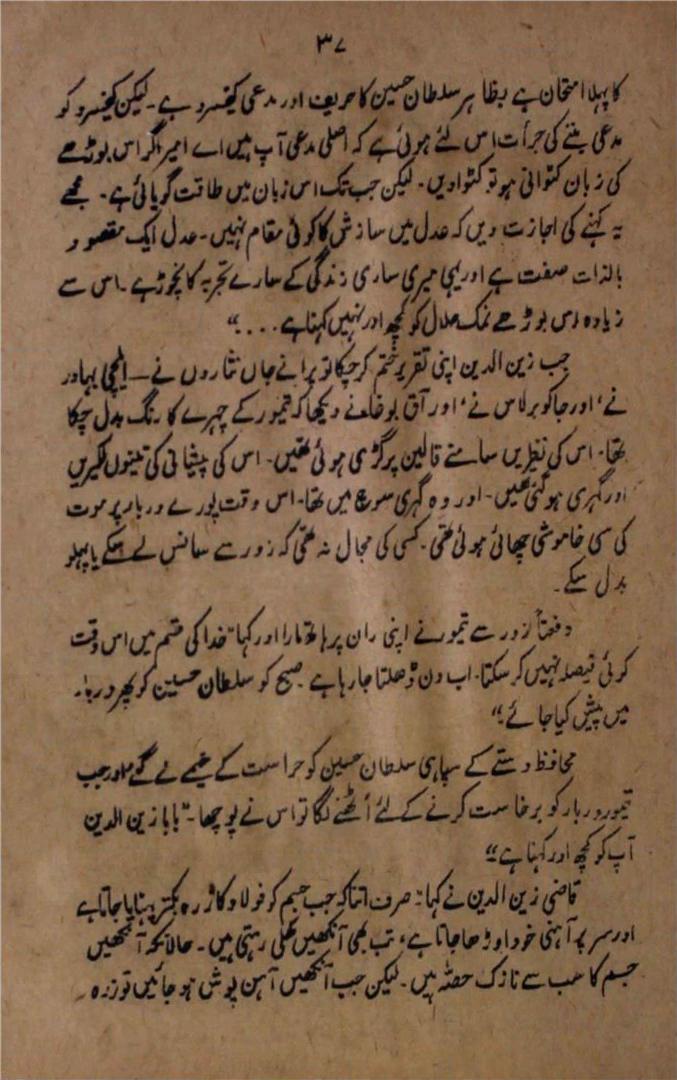 ۳۷
کا پہلا امتحان ہے بظاہر سلطان حسین کا حریف اور مدعی کیخسرو ہے۔ لیکن کیخسرو کو
مدعی بننے کی جرأت اس لئے ہوئی ہے کہ اصلی مدعی آپ ہیں اے امیر اگر اس بوڑھے
کی زبان کٹوانی ہو تو کٹوا دیں۔ لیکن جب تک اس زبان میں طاقت گویائی ہے۔ مجھے
یہ کہنے کی اجازت دیں کہ عدل میں سازش کا کوئی مقام نہیں۔ عدل ایک مقصود
بالذات صفت ہے اور یہی میری ساری زندگی کے سارے تجربہ کا نچوڑ ہے۔ اس سے
زیادہ اس بوڑھے نمک حلال کو کچھ اور نہیں کہنا ہے . . . .“
جب زین الدین اپنی تقریر ختم کر چکا تو پرانے جاں نثاروں نے — ایلچی بہادر
نے، اور جاکو برلاس نے، اور آق بوغا نے دیکھا کہ تیمور کے چہرے کا رنگ بدل چکا
تھا۔ اس کی نظریں سامنے قالین پر گڑی ہوئی تھیں۔ اس کی پیشانی کی تینوں لکیریں
اور گہری ہو گئی تھیں۔ اور وہ گہری سوچ میں تھا۔ اس وقت پورے دربار پر موت
کی سی خاموشی چھائی ہوئی تھی۔ کسی کی مجال نہ تھی کہ زور سے سانس لے سکے یا پہلو
بدل سکے۔
دفعتاً زور سے تیمور نے اپنی ران پر ہاتھ مارا اور کہا ”خدا کی قسم میں اس وقت
کوئی فیصلہ نہیں کر سکتا۔ اب دن ڈھلتا جا رہا ہے۔ صبح کو سلطان حسین کو پھر دربار
میں پیش کیا جائے۔“
محافظ دستے کے سپاہی سلطان حسین کو حراست کے خیمے لے گئے اور جب
تیمور دربار کو برخاست کرنے کے لئے اُٹھنے لگا تو اس نے پوچھا۔ ”بابا زین الدین
آپ کو کچھ اور کہنا ہے“
قاضی زین الدین نے کہا: ”صرف اتنا کہ جب جسم کو فولاد کا زرہ بکتر پہنایا جاتا ہے
اور سر پر آہنی خود اوڑھا جاتا ہے، تب بھی آنکھیں کھلی رہتی ہیں۔ حالانکہ آنکھیں
جسم کا سب سے نازک حصّہ ہیں۔ لیکن جب آنکھیں آہن پوش ہو جائیں تو زرہ